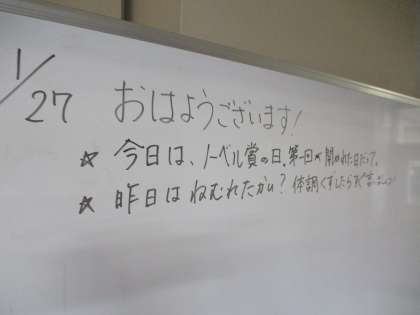 1/27 おはようございます!
☆ 今日は、ノーベル賞の日。第一回が開かれた日だって。
☆ 昨日はねむれたかい? 体調くずしたらすぐ言